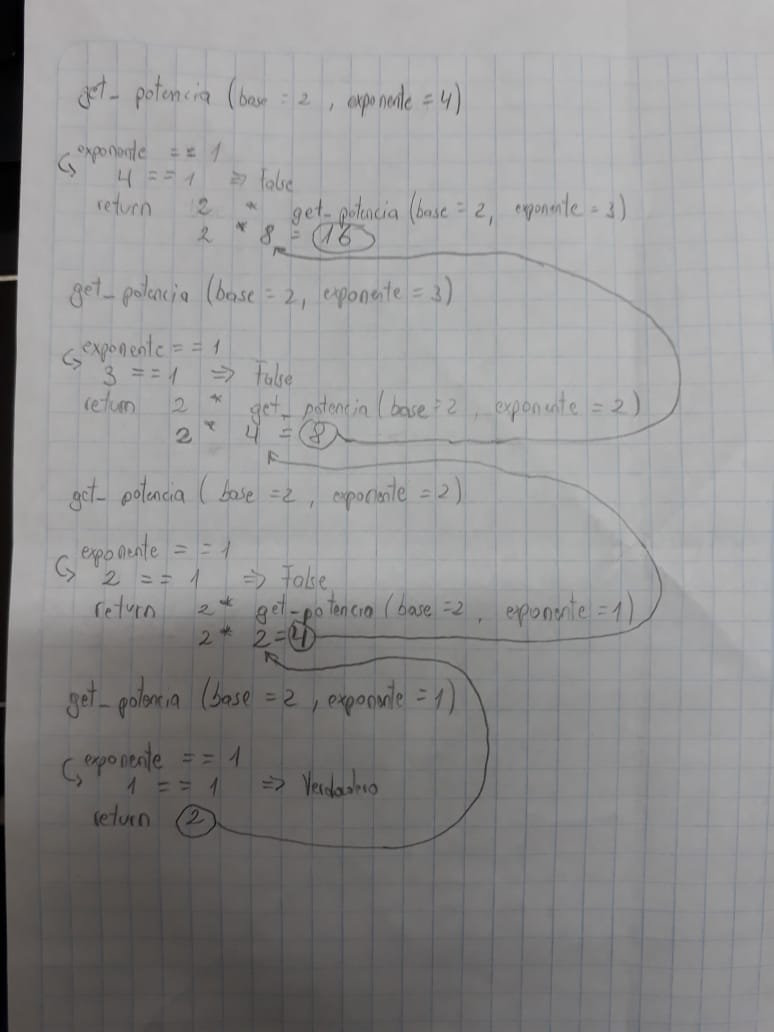 get_potencia (base = 2 , exponente = 4)
exponente == 1
4 == 1 => False
return 2 * get_potencia (base = 2, exponente = 3)
2 * 8 = 16
get_potencia (base = 2, exponente = 3)
exponente == 1
3 == 1 => False
return 2 * get_potencia (base = 2 , exponente = 2)
2 * 4 = 8
get_potencia ( base = 2 , exponente = 2)
exponente == 1
2 == 1 => False
return 2 * get_potencia (base = 2 , exponente = 1)
2 * 2 = 4
get_potencia (base = 2 , exponente = 1)
exponente == 1
1 == 1 => Verdadero
return 2